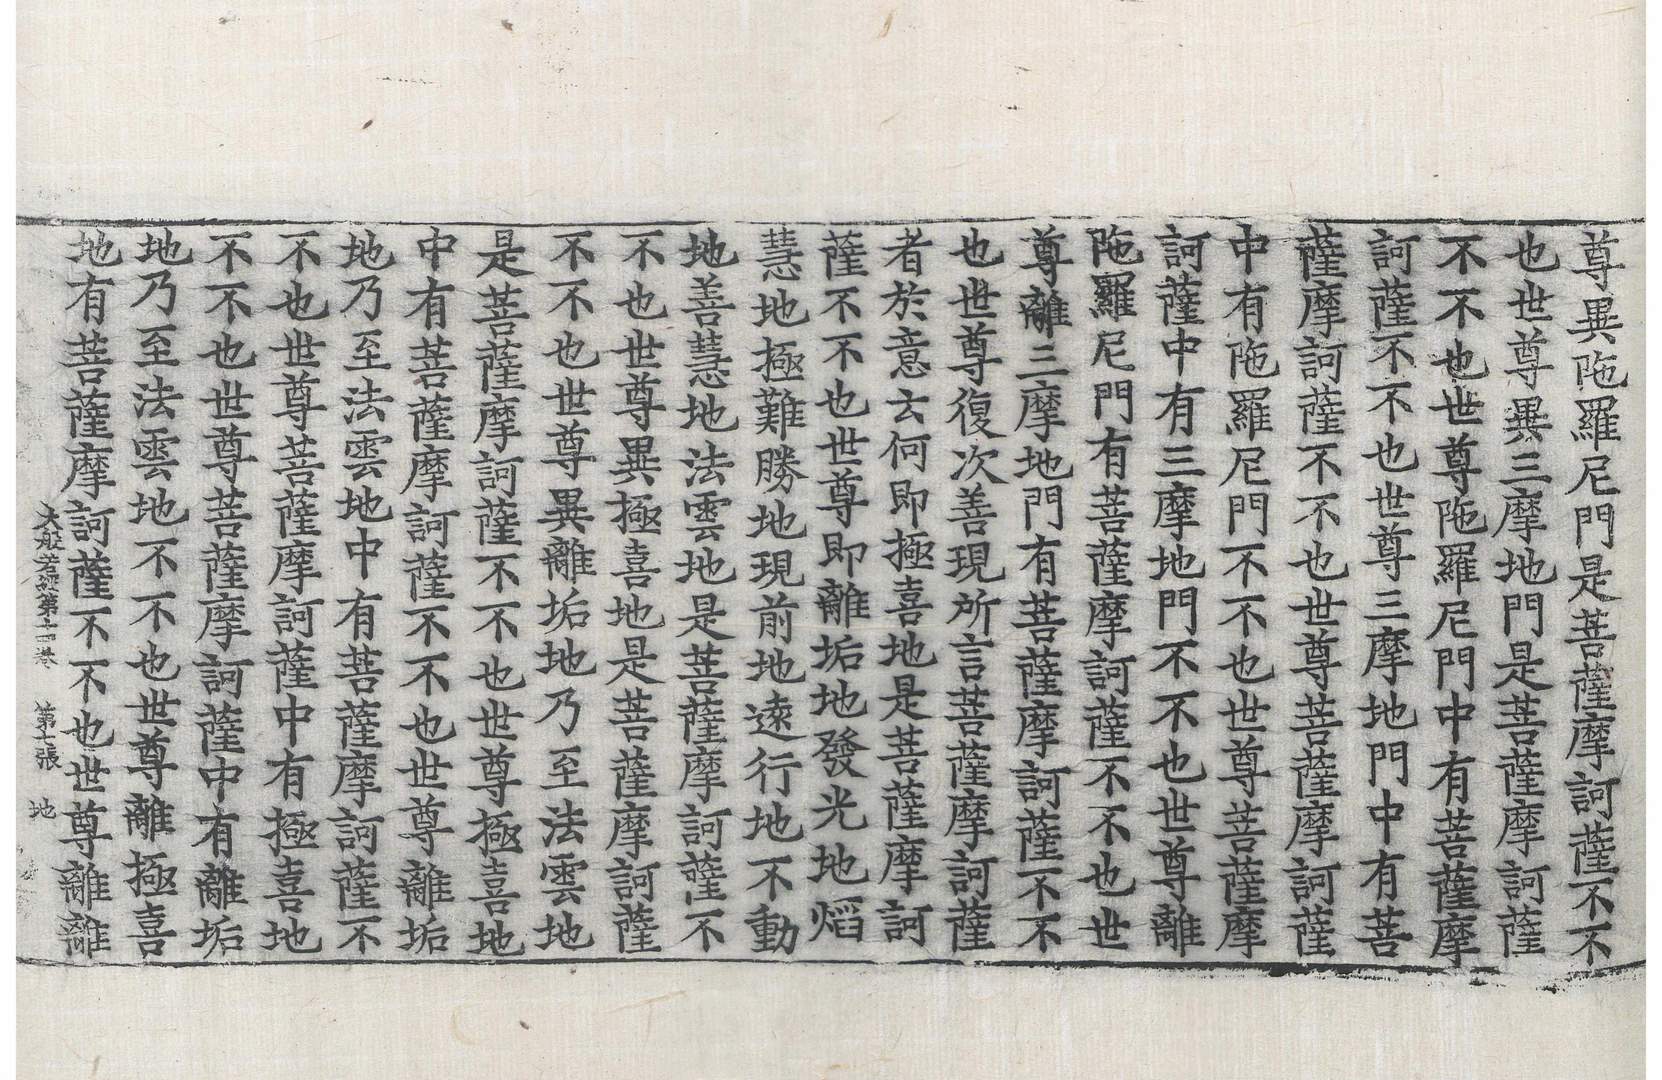 尊異陁羅尼門是菩薩摩訶薩不不
也世尊異三摩地門是菩薩摩訶薩
不不也世尊陁羅尼門中有菩薩摩
訶薩不不也世尊三摩地門中有菩
薩摩訶薩不不也世尊菩薩摩訶薩
中有陁羅尼門不不也世尊菩薩摩
訶薩中有三摩地門不不也世尊離
陁羅尼門有菩薩摩訶薩不不也世
尊離三摩地門有菩薩摩訶薩不不
也世尊復次善現所言菩薩摩訶薩
者於意云何即極喜地是菩薩摩訶
薩不不也世尊即離垢地發光地焰
慧地極難勝地現前地遠行地不動
地善慧地法雲地是菩薩摩訶薩不
不也世尊異極喜地是菩薩摩訶薩
不不也世尊異離垢地乃至法雲地
是菩薩摩訶薩不不也世尊極喜地
中有菩薩摩訶薩不不也世尊離垢
地乃至法雲地中有菩薩摩訶薩不
不也世尊菩薩摩訶薩中有極喜地
不不也世尊菩薩摩訶薩中有離垢
地乃至法雲地不不也世尊離極喜
地有菩薩摩訶薩不不也世尊離離
大般若經第十四卷 第七張 地